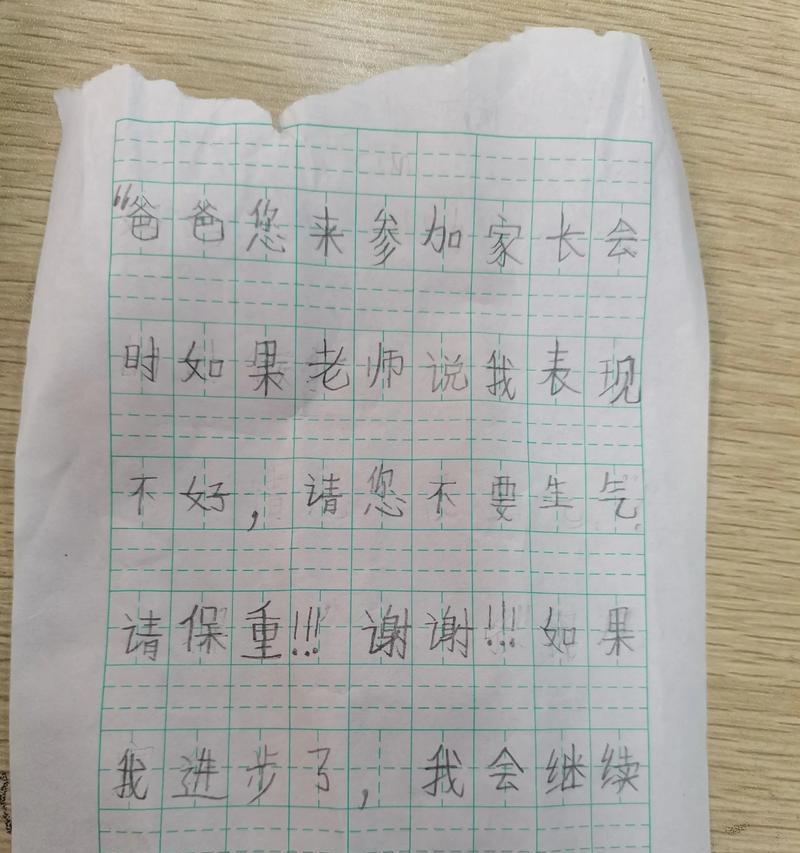 “爸爸您来参加家长会
时如果老师说我表现
不好，请您不要生气
请保重!!!谢谢!!!如果
我进步了，我会继续